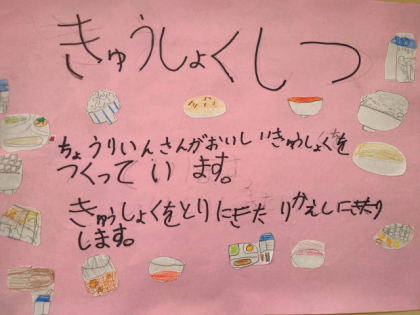 きゅうしょくしつ
ちょうりいんさんがおいしいきゅうしょくを
つくっています。
きゅうしょくをとりにきたりかえしにきたり
します。